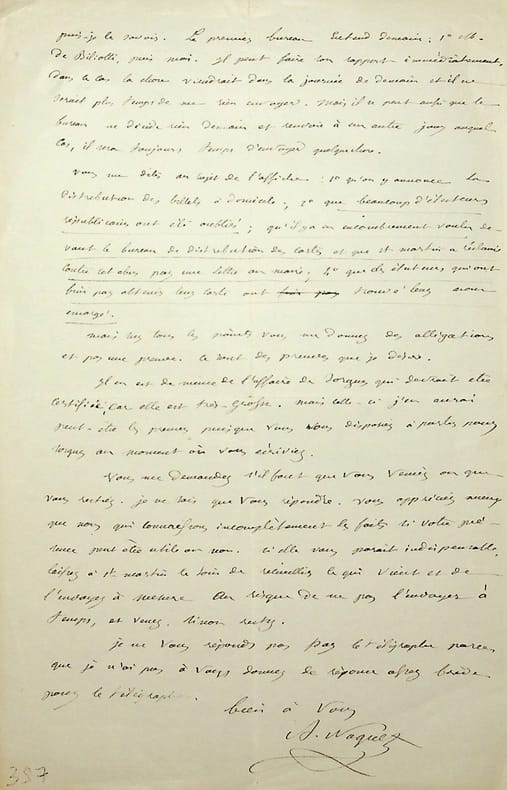 puis-je le savoir. Le premier bureau s'étend demain : 1° M.
de Biliotti, puis moi. Il peut faire son rapport immédiatement,
dans ce cas la chose viendrait dans la journée de demain et il ne
serait plus temps de me rien envoyer. Mais il se peut aussi que le
bureau ne décide rien demain et renvoie à un autre jour auquel
cas, il sera toujours temps d'envoyer quelque chose.
Vous me dites au sujet de l'affiche : 1° qu'on y annonce la
distribution des billets à domicile ; 2° que beaucoup d'électeurs
républicains ont été oubliés ; qu'il y a eu encombrement voulu de-
vant le bureau de distribution des cartes et que St martin a réclamé
contre cet abus par une lettre au maire ; 4° que des électeurs qui ont
bien pas obtenir leur carte ont trouvé leur nom
émargé.
mais sur tous les points vous me donnez des allégations
et pas une preuve. Ce sont des preuves que je désire.
Il en est de meme de l'affaire de Sorgues qui devrait etre
certifiée, car elle est très-grosse. mais celle-ci j'en aurai
peut-etre les preuves puisque vous vous disposez à partir pour
Sorgues au moment où vous écriviez.
Vous me demandez s'il faut que vous veniez ou que
vous restiez. je ne sais que vous répondre. vous appréciez mieux
que nous qui connaissons incomplètement les faits si votre pré-
sence peut être utile ou non. si elle vous parait indispensable,
laissez à St martin le soin de recueillir ce qui vient et de
l'envoyer à mesure au risque de ne pas l'envoyer à
temps, et venez. Sinon restez.
je ne vous réponds pas par le télégraphe parce
que je n'ai pas à vous donner de réponse assez brève
pour le télégraphe.
bien à vous
A. Naquet
387